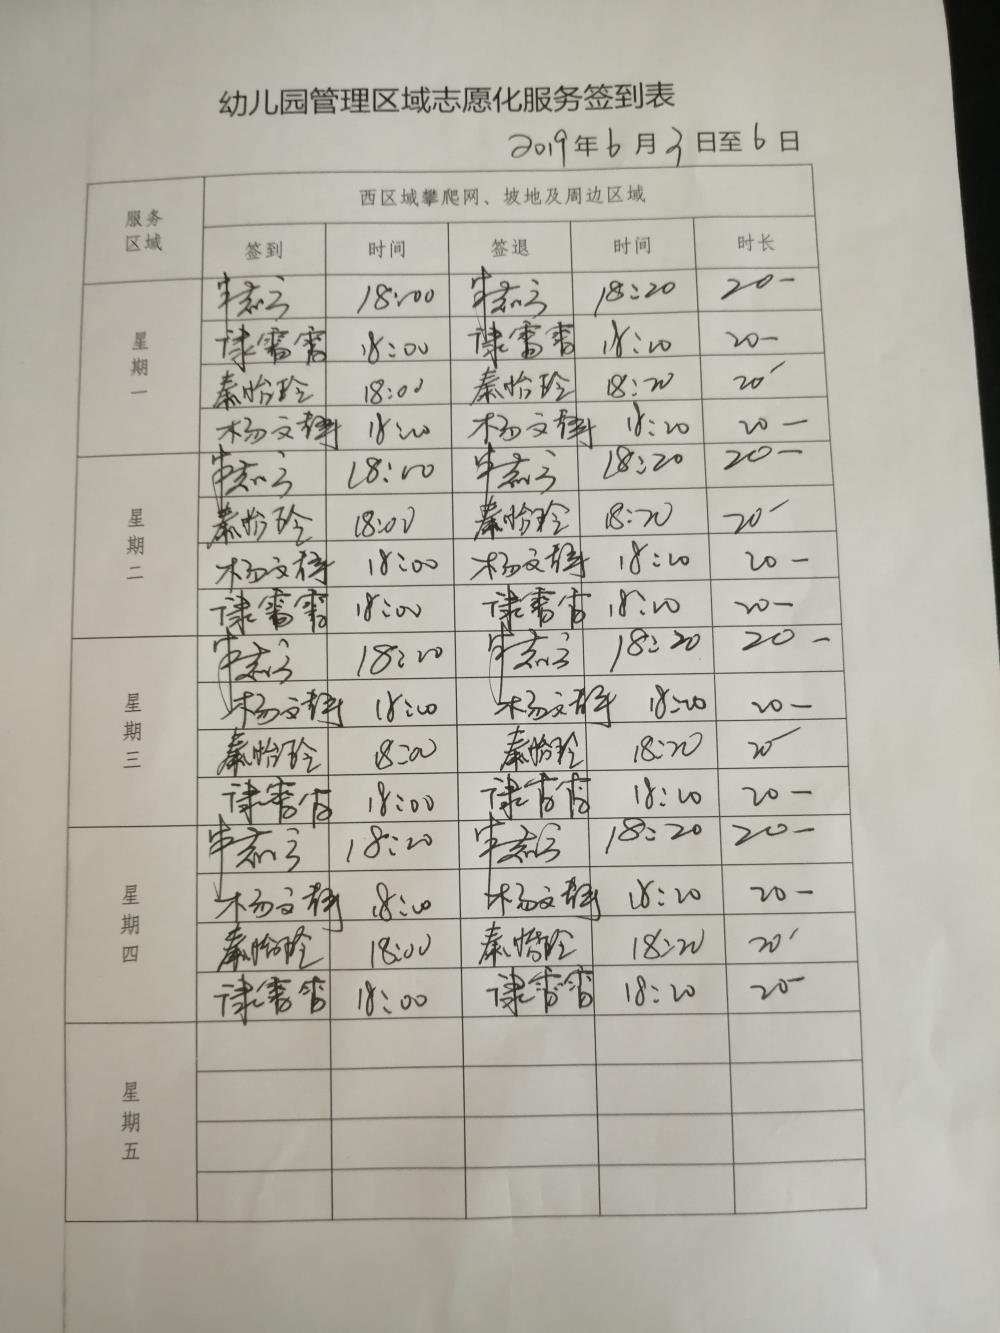 幼儿园管理区域志愿化服务签到表
2019年6月3日至6日
服务区域 西区域攀爬网、坡地及周边区域
签到 时间 签退 时间 时长
星期一
18:00 18:20 20-
18:00 18:20 20-
秦怡玲 18:00 秦怡玲 18:20 20'
杨文静 18:00 杨文静 18:20 20-
星期二
18:00 18:20 20-
秦怡玲 18:00 秦怡玲 18:20 20'
杨文静 18:00 杨文静 18:20 20-
18:00 18:20 20-
星期三
18:20 18:20 20-
杨文静 18:00 杨文静 18:20 20-
秦怡玲 18:00 秦怡玲 18:20 20'
18:00 18:20 20-
星期四
18:20 18:20 20-
杨文静 18:00 杨文静 18:20 20-
秦怡玲 18:00 秦怡玲 18:20 20'
18:00 18:20 20-
星期五